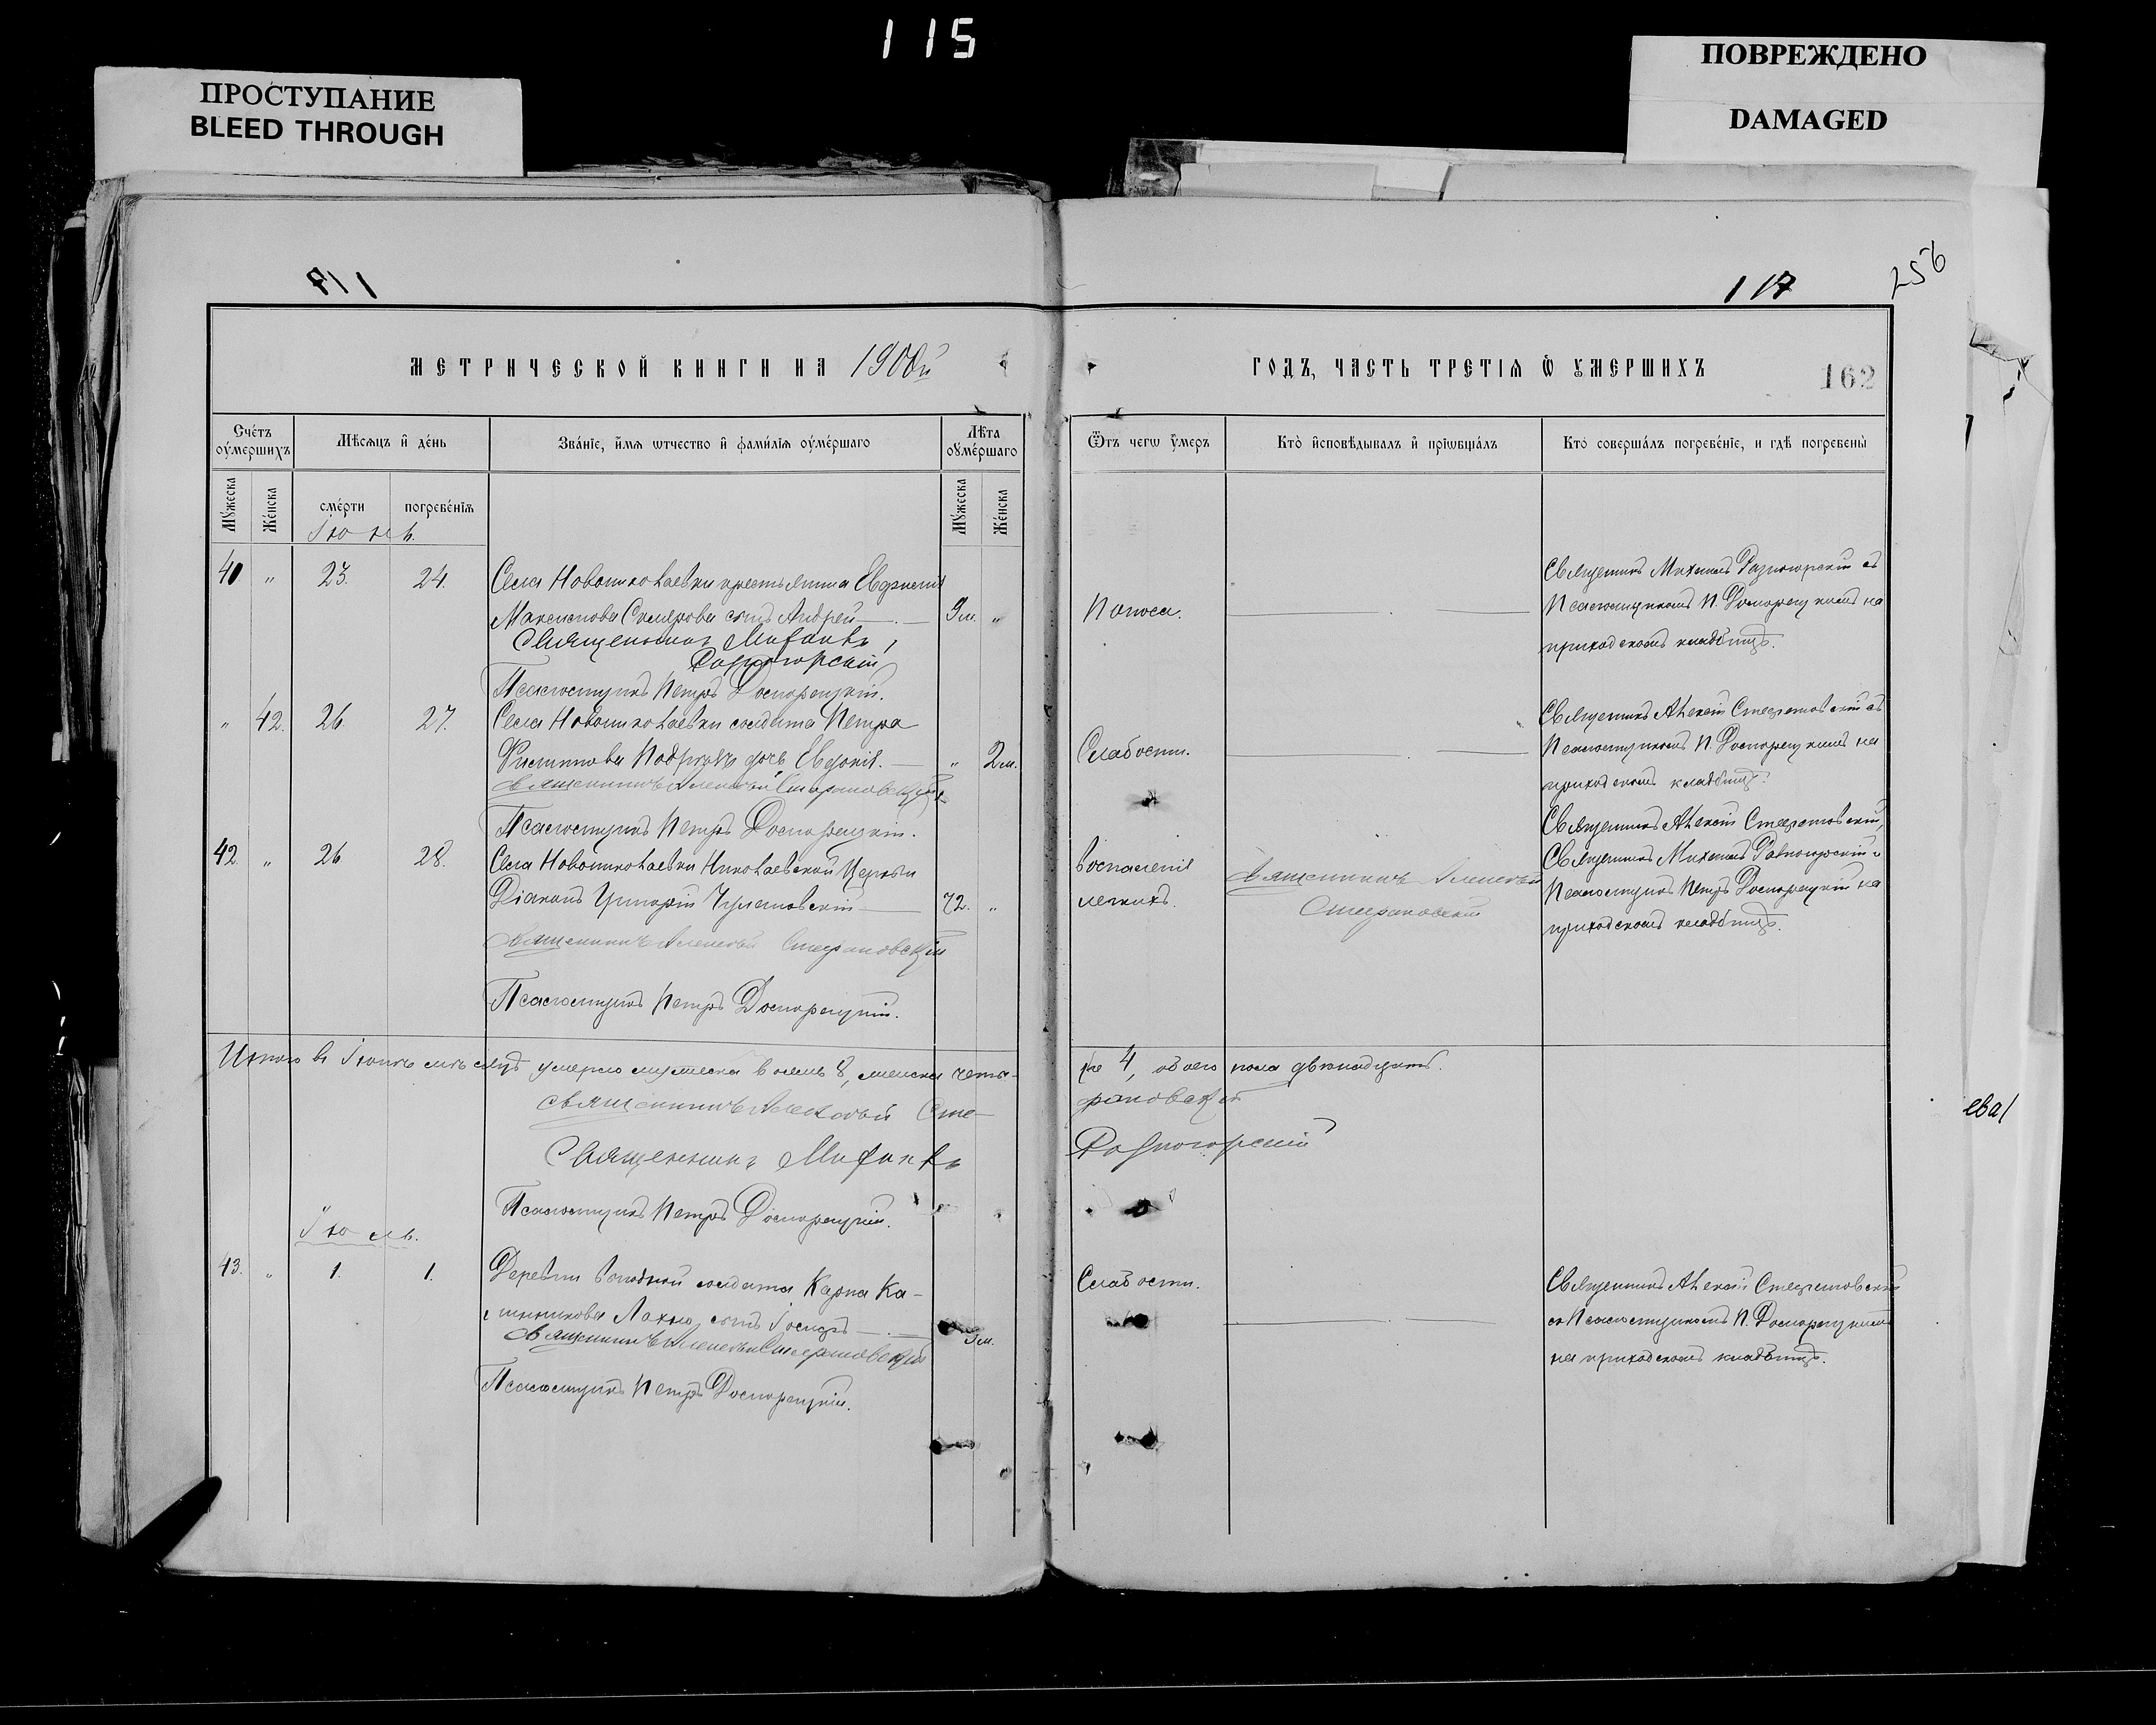 115
ПРОСТУПАНИЕ
BLEED THROUGH
ПОВРЕЖДЕНО
DAMAGED
117
256
МЕТРИЧЕСКОЙ КНИГИ НА 1900й
ГОДЪ, ЧАСТЬ ТРЕТІѦ Ѽ ОУМЕРШИХЪ
162
Сче́тъ оу҆ме́ршихъ
Мѣ́сѧцъ и҆ де́нь
Зва́нїе, и҆́мѧ ѿчество и҆ фами́лїѧ оу҆ме́ршагѡ
Лѣ́та оу҆ме́ршагѡ
Ѿ чегѡ̀ оу҆́меръ
Кто̀ и҆сповѣ́дывалъ и҆ прїѡбща́лъ
Кто̀ соверша́лъ погребе́нїе, и҆ гдѣ̀ погребены̀
Мꙋ́жеска
Же́нска
сме́рти
погребе́нїѧ
Мꙋ́жеска
Же́нска
Іюнь.
40 " 23. 24. Села Новониколаевки крестьянина Евфимія
Максимова сынъ Андрей 9 м. "
Священникъ Михаилъ
Разногорскій
Псаломщикъ Петръ Доспорецкій.
Поноса.
Священникъ Михаилъ Разногорскій съ
Псаломщикомъ П. Доспорецкимъ на
приходскомъ кладбищѣ.
" 42. 26. 27. Села Новониколаевки солдата Петра
дочь Евдокія. " 2 м.
Священникъ Алексѣй Стефановскій
Псаломщикъ Петръ Доспорецкій.
Слабости.
Священникъ Алексѣй Стефановскій съ
Псаломщикомъ П. Доспорецкимъ на
приходскомъ кладбищѣ.
42 " 26 28. Села Новониколаевки Николаевской Церкви
Діаконъ Григорій 72. "
Священникъ Алексѣй Стефановскій
Псаломщикъ Петръ Доспорецкій.
воспаленія
легкихъ.
Священникъ Алексѣй
Стефановскій
Священникъ Алексѣй Стефановскій,
Священникъ Михаилъ Разногорскій и
Псаломщикъ Петръ Доспорецкій на
приходскомъ кладбищѣ.
Итого въ Іюнѣ мѣсяцѣ умерло мужеска восемь 8, женска четы-
ре 4, обоего пола двѣнадцать.
Священникъ Алексѣй Сте-
фановскій
Священникъ Михаилъ
Разногорскій
Псаломщикъ Петръ Доспорецкій.
Іюль.
43. " 1. 1. Деревни солдата Карпа Ка-
линникова Лахно сынъ м.
Священникъ Алексѣй Стефановскій
Псаломщикъ Петръ Доспорецкій.
Слабости.
Священникъ Алексѣй Стефановскій
съ Псаломщикомъ П. Доспорецкимъ
на приходскомъ кладбищѣ.
ева/